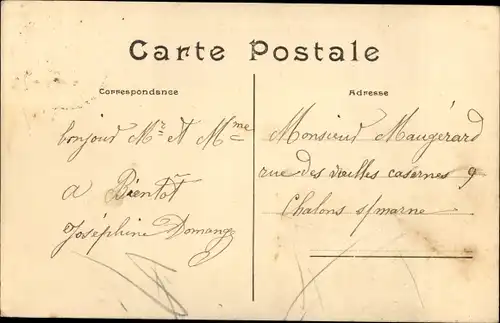 Carte Postale
Correspondance
bonjour Mr et Mme
a Bientot
Joséphine Domange
Adresse
Monsieur Maugérard
rue des vieilles casernes 9
Chalons s/marne